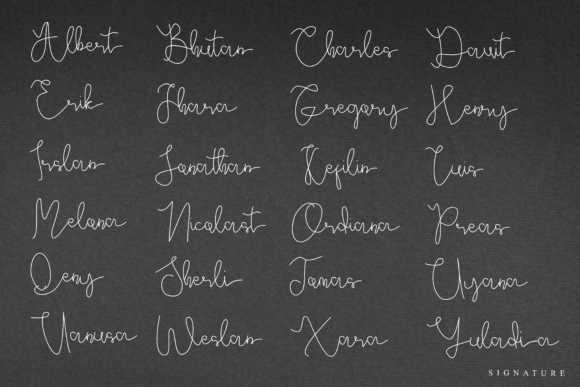 Albert Bhutan Charles Dawit
Erik Fhara Gregory Henry
Irslan Jonathan Kefilin Luis
Melana Nicolast Ordiana Preas
Qeny Sherli Tomas Uyana
Vanussa Weslan Xara Yuladia
SIGNATURE